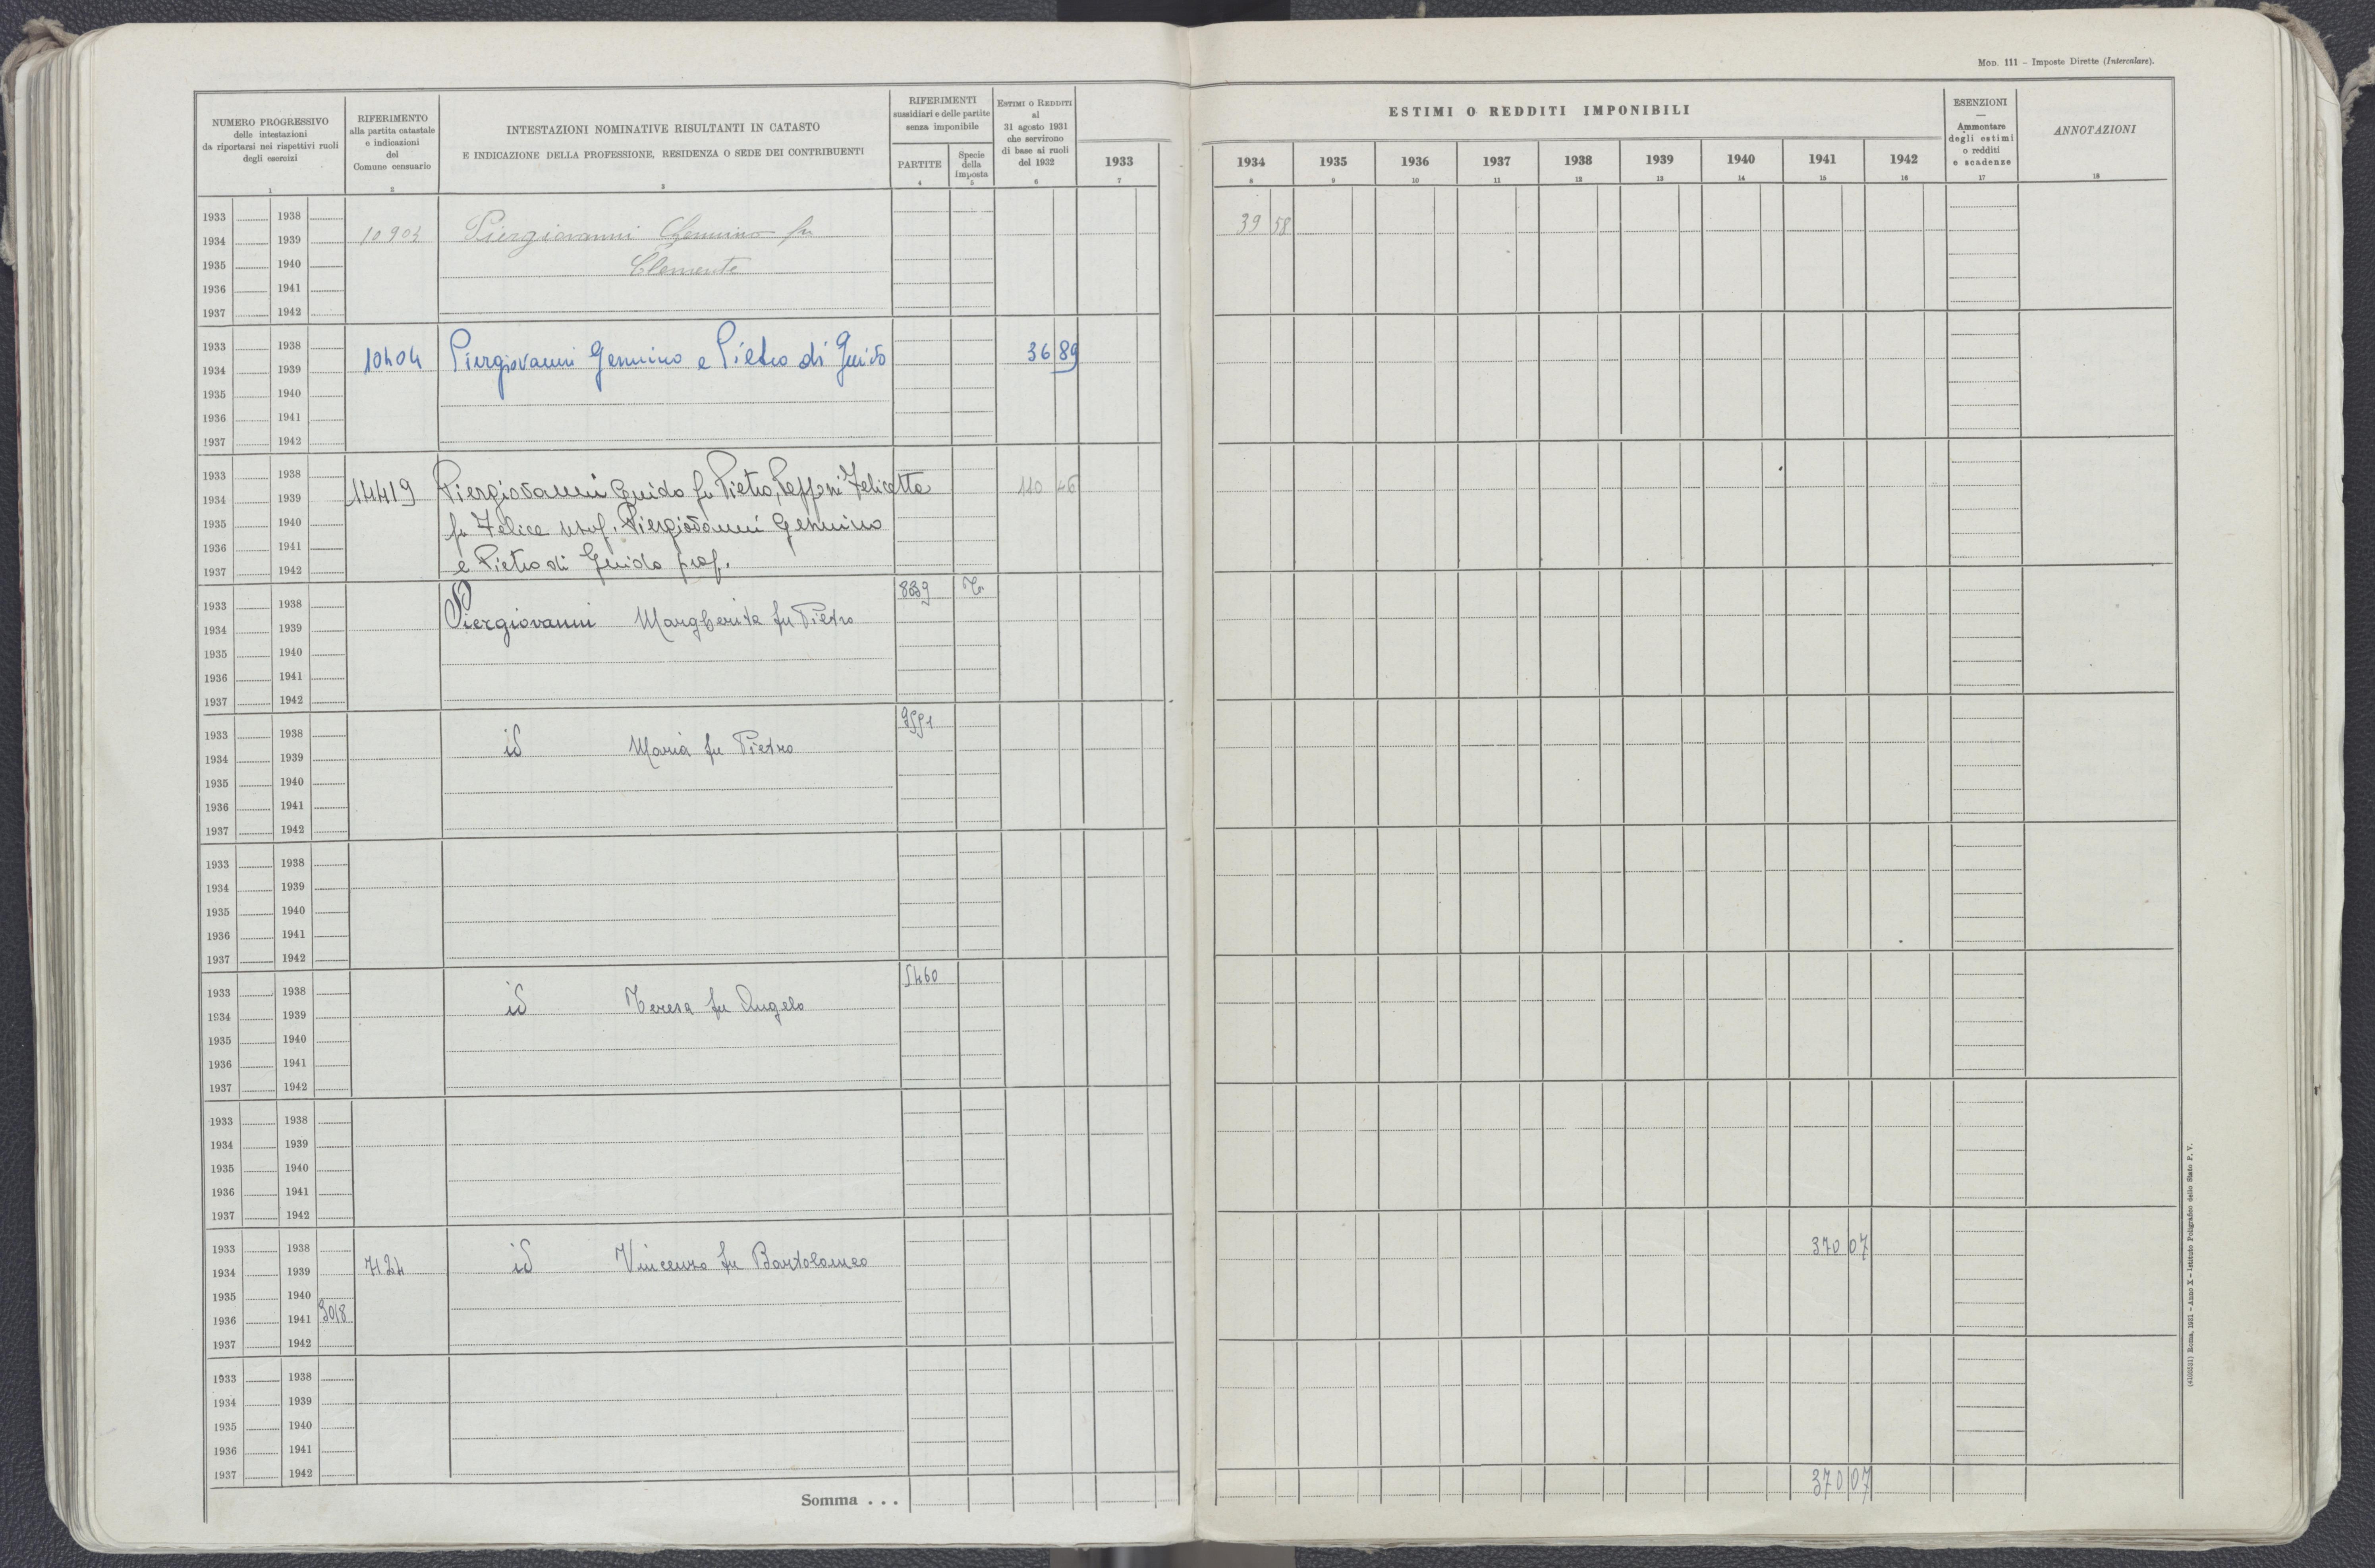 Mod. 111 – Imposte Dirette (Intercalare).
NUMERO PROGRESSIVO
delle intestazioni
da riportarsi nei rispettivi ruoli
degli esercizi
1
RIFERIMENTO
alla partita catastale
e indicazioni
del
Comune censuario
2
INTESTAZIONI NOMINATIVE RISULTANTI IN CATASTO
E INDICAZIONE DELLA PROFESSIONE, RESIDENZA O SEDE DEI CONTRIBUENTI
3
RIFERIMENTI
sussidiari e delle partite
senza imponibile
PARTITE
4
Specie
della
imposta
5
Estimi o Redditi
al
31 agosto 1931
che servirono
di base ai ruoli
del 1932
6
ESTIMI O REDDITI IMPONIBILI
1933 1934 1935 1936 1937 1938 1939 1940 1941 1942
7 8 9 10 11 12 13 14 15 16
ESENZIONI
—
Ammontare
degli estimi
o redditi
e scadenze
17
ANNOTAZIONI
18
1933 1938
1934 1939 10904 Piergiovanni Gennino fu 39 58
1935 1940 Clemente
1936 1941
1937 1942
1933 1938
1934 1939 10404 Piergiovanni Gennino e Pietro di Guido 36 89
1935 1940
1936 1941
1937 1942
1933 1938
1934 1939 14419 Piergiovanni Guido fu Pietro, Felicetta 110 46
1935 1940 fu Felice usuf. Piergiovanni Gennino
1936 1941
1937 1942 e Pietro di Guido prop.
1933 1938 8839
1934 1939 Piergiovanni Margherita fu Pietro
1935 1940
1936 1941
1937 1942
1933 1938 9591
1934 1939 id Maria fu Pietro
1935 1940
1936 1941
1937 1942
1933 1938
1934 1939
1935 1940
1936 1941
1937 1942
1933 1938 5460
1934 1939 id Teresa fu Angelo
1935 1940
1936 1941
1937 1942
1933 1938
1934 1939
1935 1940
1936 1941
1937 1942
1933 1938 370 07
1934 1939 7124 id Vincenzo fu Bartolomeo
1935 1940
1936 1941 3018
1937 1942
1933 1938
1934 1939
1935 1940
1936 1941
1937 1942
Somma . . . 370 07
(4103531) Roma, 1931 – Anno X – Istituto Poligrafico dello Stato P. V.